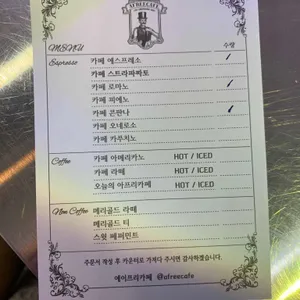 AFREECAFE
MENU 수량
Espresso 카페 에스프레소
카페 스트라파짜토
카페 로마노
카페 피에노
카페 콘판나
카페 오네로소
카페 카푸치노
Coffee 카페 아메리카노 HOT / ICED
카페 라떼 HOT / ICED
오늘의 아프리카페 HOT / ICED
Non Coffee 메리골드 라떼
메리골드 티
스윗 페퍼민트
주문서 작성 후 카운터로 가져다 주시면 감사하겠습니다.
에이프리카페 @afreecafe